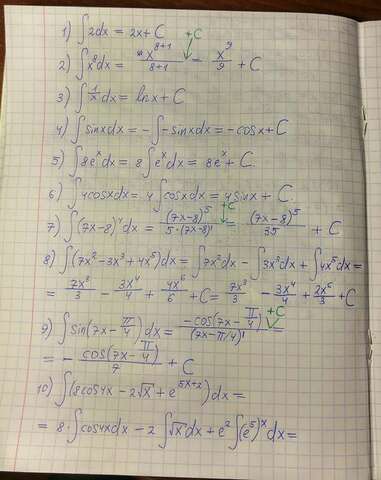 1) ∫2dx = 2x + C
+C
2) ∫x⁸dx = x⁸⁺¹/8+1 = x⁹/9 + C
3) ∫1/x dx = lnx + C
4) ∫sinxdx = -∫-sinxdx = -cosx + C
5) ∫8eˣdx = 8∫eˣdx = 8eˣ + C
6) ∫4cosxdx = 4∫cosxdx = 4sinx + C
+C
7) ∫(7x-8)⁴dx = (7x-8)⁵/5·(7x-8)' = (7x-8)⁵/35 + C
8) ∫(7x²-3x³+4x⁵)dx = ∫7x²dx - ∫3x³dx + ∫4x⁵dx =
= 7x³/3 - 3x⁴/4 + 4x⁶/6 + C = 7x³/3 - 3x⁴/4 + 2x⁶/3 + C
+C
9) ∫sin(7x - π/4)dx = -cos(7x - π/4)/(7x-π/4)' =
= - cos(7x - π/4)/7 + C
10) ∫(8cos4x - 2√x + e⁵ˣ⁺²)dx =
= 8·∫cos4xdx - 2∫√xdx + e²∫(e⁵)ˣdx =